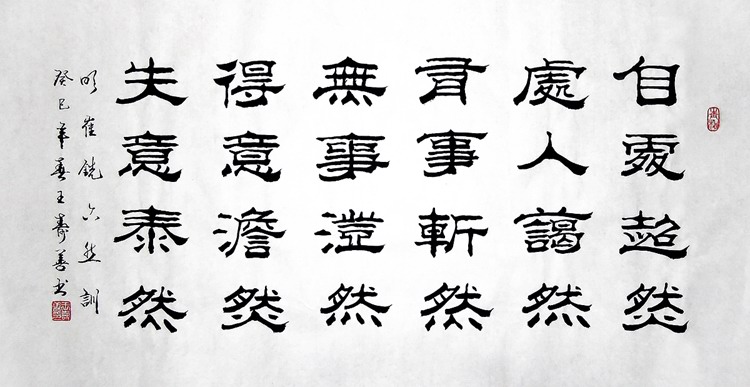 自處超然
處人藹然
有事斬然
無事澄然
得意澹然
失意泰然
明崔銑六然訓
癸巳年春王壽善书